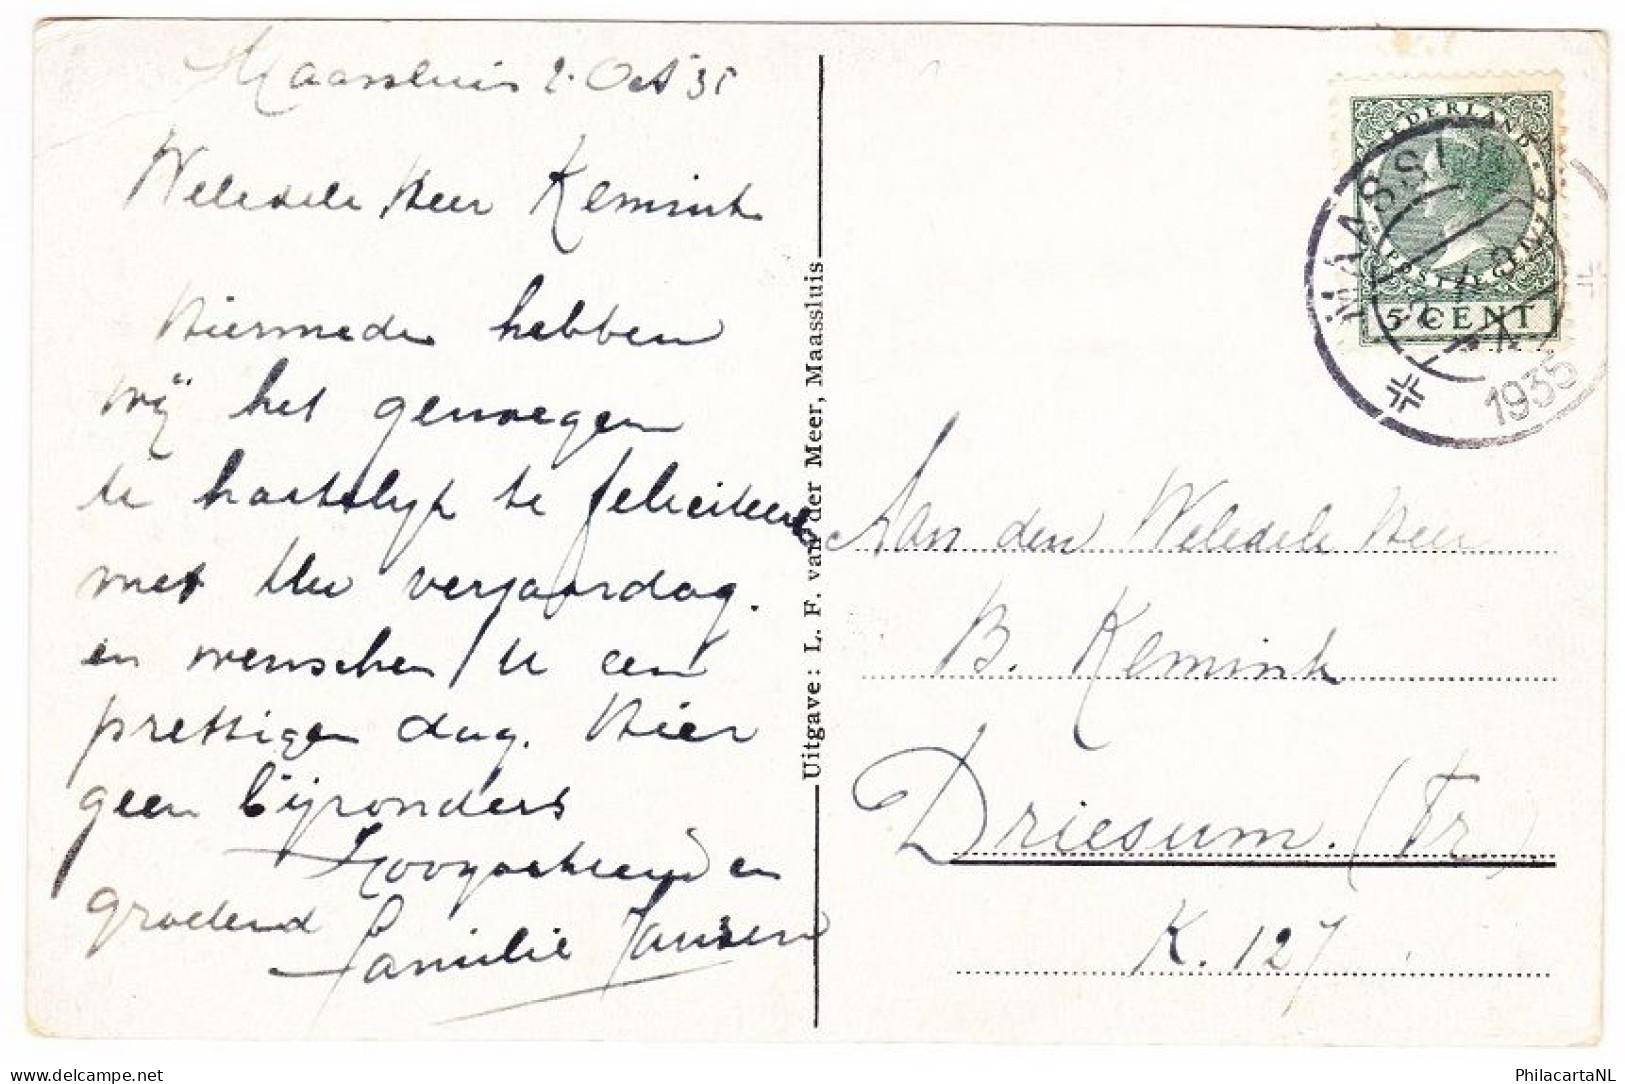 Maassluis 2. Oct 35
Weledele Heer Kemink
Hiermede hebben
wij het genoegen
te hartelijk te feliciteeren
met Uw verjaardag.
en wenschen U een
prettigen dag. Hier
geen bijzonders
Hoogachtend en
groetend
Familie Jansen
Uitgave: L. F. van der Meer, Maassluis
NEDERLAND
POSTZEGEL
5 CENT
MAASSLUIS
1935
Aan den Weledele Heer
B. Kemink
Driesum. (Fr.)
K. 127
PhilacartaNL